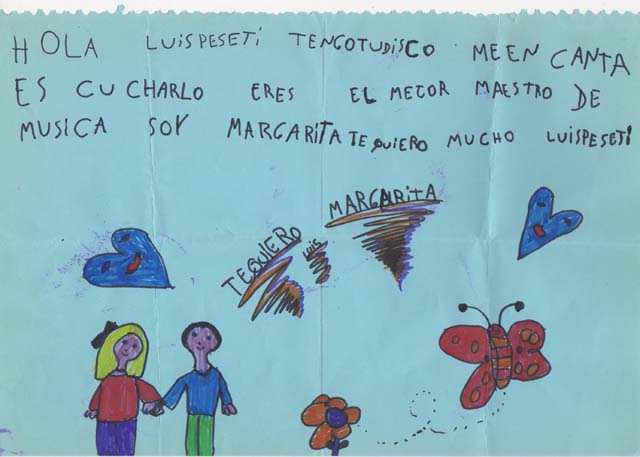 HOLA LUISPESETi TENGOTUDISCO MEEN CANTA
ES CUCHARLO ERES EL MECOR MAESTRO DE
MUSICA SOY MARGARiTA TE QUIERO MUCHO LUISPESETi
TEQUIERO LUIS MARGARITA